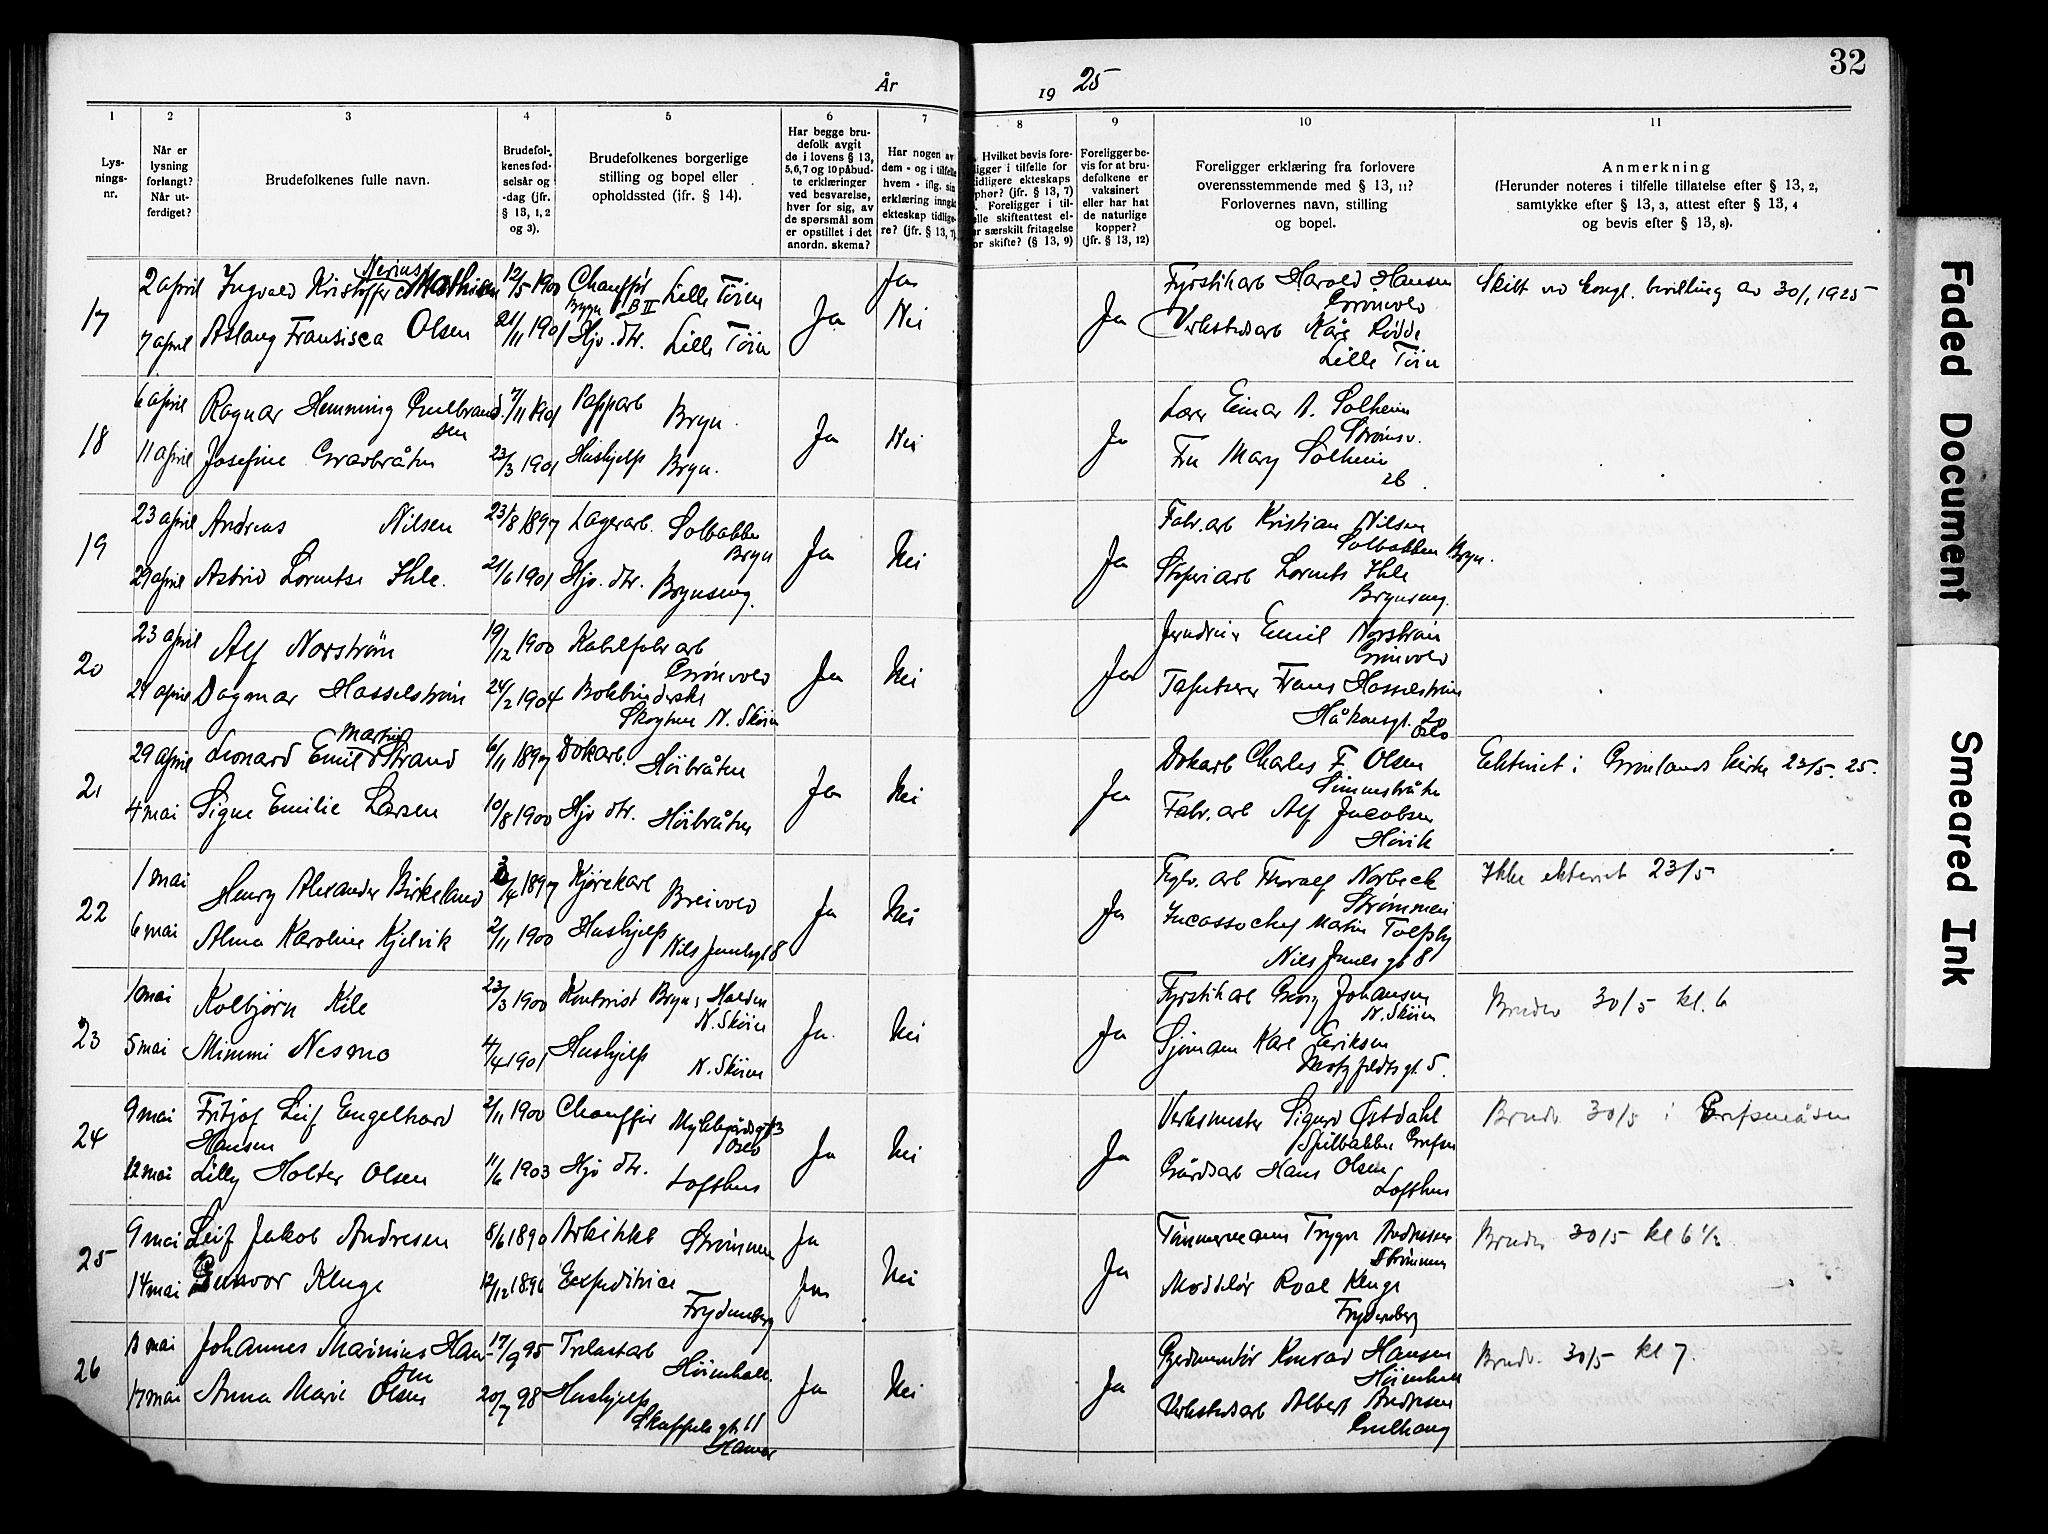 32
År
19 25
1
2
3
4
5
6
7
8
9
10
11
Lys-
nings-
nr.
Når er
lysning
forlangt?
Når ut-
ferdiget?
Brudefolkenes fulle navn.
Brudefol-
kenes fød-
selsår og
-dag (jfr.
§ 13, 1, 2
og 3).
Brudefolkenes borgerlige
stilling og bopel eller
opholdssted (jfr. § 14).
Har begge bru-
defolk avgit
de i lovens § 13,
5, 6, 7 og 10 påbud-
te erklæringer
ved besvarelse,
hver for sig, av
de spørsmål som
er opstillet i det
anordn. skema?
Har nogen av
dem - og i tilfelle
hvem - iflg. sin
erklæring inngåt
ekteskap tidlige-
re? (jfr. § 13, 7).
Hvilket bevis fore-
ligger i tilfelle for
tidligere ekteskaps
ophør? (jfr. § 13, 7)
Foreligger i til-
felle skifteattest el-
ler særskilt fritagelse
for skifte? (§ 13, 9)
Foreligger be-
vis for at bru-
defolkene er
vaksinert
eller har hat
de naturlige
kopper?
(jfr. § 13, 12)
Foreligger erklæring fra forlovere
overensstemmende med § 13, 11?
Forlovernes navn, stilling
og bopel.
Anmerkning
(Herunder noteres i tilfelle tillatelse efter § 13, 2,
samtykke efter § 13, 3, attest efter § 13, 4
og bevis efter § 13, 8).
17
2 april
7 april
Nerius
Ingvald Kristoffer Mathisen
Aslaug Fransisca Olsen
12/5 1900
21/11 1901
Chauffør Lille Tøien
Bygn B II
Hjv. dtr. Lille Tøien
Ja
Ja
Nei
Ja
Fyrstikarb Harald Hansen
Grønvold
Verkstedsarb Kåre Rødde
Lille Tøien
Skilt ved kongl. bevilling av 30/1 1925
18
6 april
11 april
Ragnar Hemming Gulbrand
sen
Josefine Gravbråten
7/11 1901
23/3 1901
Papparb Bryn.
Hushjelp Bryn.
Ja
Nei
Ja
Lærer Einar A. Solheim
Strømsv.
Fru Mary Solheim
26.
19
23 april
29 april
Andreas Nilsen
Astrid Lorentse Ihle.
23/8 1897
21/6 1901
Lagerarb. Solbakken
Bryn
Hjv. dtr. Brynseng.
Ja
Nei
Ja
Fabr. arb Kristian Nilsen
Solbakken Bryn.
Støperiarb Lorents Ihle
Brynseng.
20
23 april
29 april
Alf Norstrøm
Dagmar Hasselstrøm
19/12 1900
24/2 1904
Kabelfabr arb
Grønvold
Bokbinderske
Skøyten N. Skøien
Ja
Nei
Ja
Jerndreier Emil Norstrøm
Grønvold
Tapetserer Frans Hasselstrøm
Håkonsgt. 20
Oslo
21
29 april
4 mai
Martin
Leonard Emil Strand
Signe Emilie Larsen
6/11 1897
10/8 1900
Dokarb. Høibråten
Hjv dtr. Høibråten
Ja
Nei
Ja
Dokarb Charles F. Olsen
Simensbråten
Fabr. arb Alf Jacobsen
Høvik
Ekteviet i Grønlands kirke 23/5. 25.
22
1 mai
6 mai
Henry Alexander Birkeland
Alma Karoline Kjelvik
3/4 1897
2/11 1900
Kjørekarl Breivold
Hushjelp
Nils Juelsgt 8
Ja
Nei
Ja
Fabr. arb Thoralf Norbeck
Strømmen
Incassochef Martin Tolpby
Niels Juels gt 8
Ikke ekteviet 23/5
23
1 mai
5 mai
Kolbjørn Kile
Mimmi Nesmo
23/3 1900
4/4 1901
Kontorist Bryn, Halden
N. Skøien
Hushjelp N. Skøien
Ja.
Nei
Ja
Fyrstikarb Georg Johansen
N. Skøien
Sjømann Karl Eriksen
Motzfeldtsgt. 5.
Brudev 30/5 kl. 6
24
9 mai
12 mai
Fritjof Leif Engelhard
Hansen
Lilly Holter Olsen
2/11 1900
11/6 1903
Chauffør
Oslo
Hjv dtr. Lofthus
Ja
Nei
Ja
Verksmester Sigurd Østdahl
Spilbakken Grefsen
Gårdsarb Hans Olsen
Lofthus
Brudev 30/5 i Grefsenåsen
25
9 mai
14 mai
Leif Jakob Andresen
Gunvor Kluge
8/6 1890
12/12 1896
Arkitekt Strømmen
Expeditrice
Frydenberg
Ja
Ja
Nei
Ja
Tømmermann Trygve Andresen
Strømmen
Modellør Roal Kluge
Frydenberg
Brudev 30/5 kl 6 1/2
26
13 mai
17 mai
Johannes Marinius Han-
sen
Anna Marie Olsen
17/9 95
20/7 98
Trelastarb
Høienhall.
Hushjelp
Skappels gt. 11
Hamar
Ja
Nei
Ja
Konrad Hansen
Høienhall
Verkstedsarb Albert Andresen
Gulhaug
Brudev. 30/5 kl 7.
Faded Document
Smeared Ink